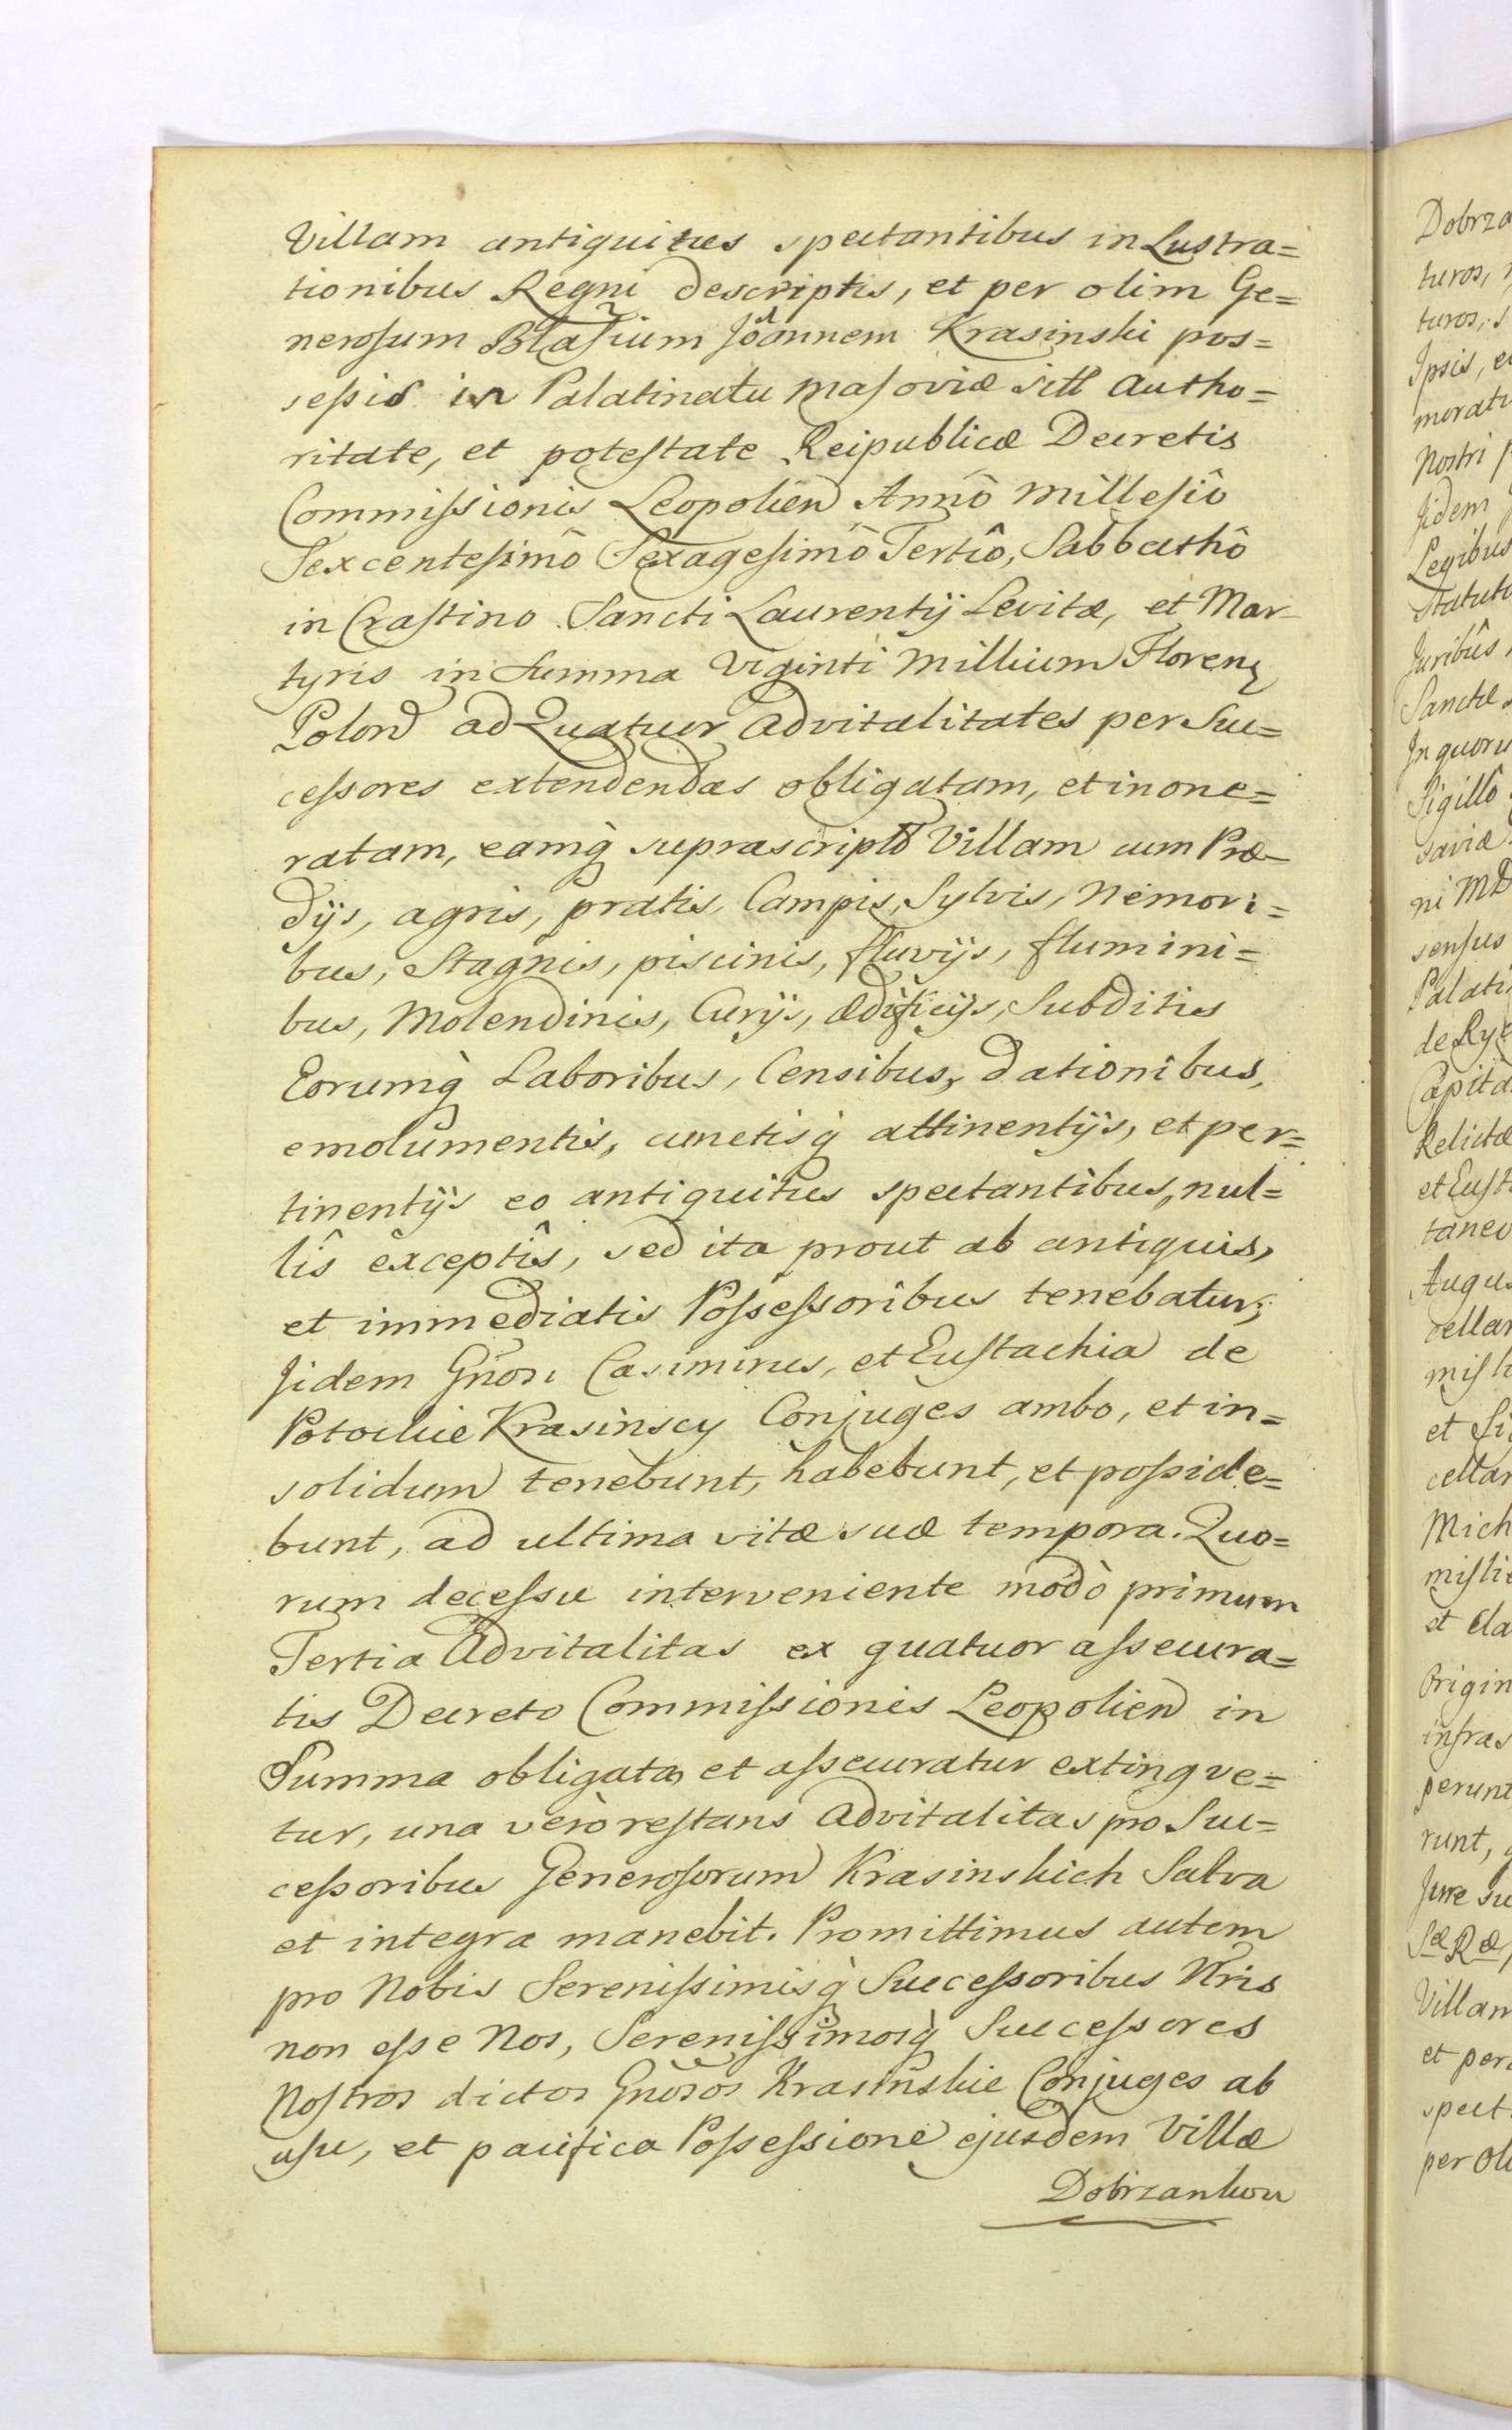 Villam antiquitus spectantibus in Lustra=
tionibus Regni descriptis, et per olim Ge=
nerosum Blasium Joannem Krasinski pos=
sessis in Palatinatu Masoviæ sitt Autho=
ritate, et potestate Reipublicæ Decretis
Commissionis Leopolien Annô Millesiô
Sexcentesimô Sexagesimô Tertiô, Sabbathô
in Crastino Sancti Laurentij Levitæ, et Mar-
tyris in Summa Viginti Millium Floren
Polon ad Quatuor Advitalitates per Suc=
cessores extendendas obligatam, et inone=
ratam, eamq̀ suprascriptô Villam cum Præ-
dijs, agris, pratis, Campis, Sylvis, Nemori=
bus, Stagnis, piscinis, fluvijs, flumini=
bus, Molendinis, Curijs, ædificijs, Subditis
Eorumq̀ Laboribus, Censibus, dationibus,
emolumentis, cunctisq̀ attinentijs, et per=
tinentijs eo antiquitus spectantibus, nul=
lîs exceptîs, sed ita prout ab antiquis,
et immediatis Possessoribus tenebatur;
Jidem Gnosi Casimirus, et Eustachia de
Potockie Krasinscy Conjuges ambo, et in=
solidum tenebunt, habebunt, et posside=
bunt, ad ultima vitæ suæ tempora. Quo=
rum decessu interveniente modò primum
Tertia Advitalitas ex quatuor assecura=
tis Decreto Commissionis Leopolien in
Summa obligata, et assecuratur extingve=
tur, una verò restans Advitalitas pro Suc=
cessoribus Generosorum Krasinskich Salva
et integra manebit. Promittimus autem
pro Nobis Serenissimisq̀ Successoribus Nris
non esse Nos, Serenissimosq̀ Successores
Nostros dictos Gnosos Krasinskie Conjuges ab
usu, et pacifica Possessione ejusdem Villæ
Dobrzankow
Dobrza
turos,
turos, s
Ipsis, e
morati
Nostri
Jidem
Legibus
Statut
Juribûs
Sanctæ
In quoru
Sigillô
saviæ
ni MD
sensus
Palati
de Ry
Capita
Relictæ
et Eust
taneo
Augus
cellar
misli
et Si
cellar
Mich
misli
et cla
Origin
infras
perunt
runt,
Jure su
Sæ Ræ,
Villam
et per
spect
per oli